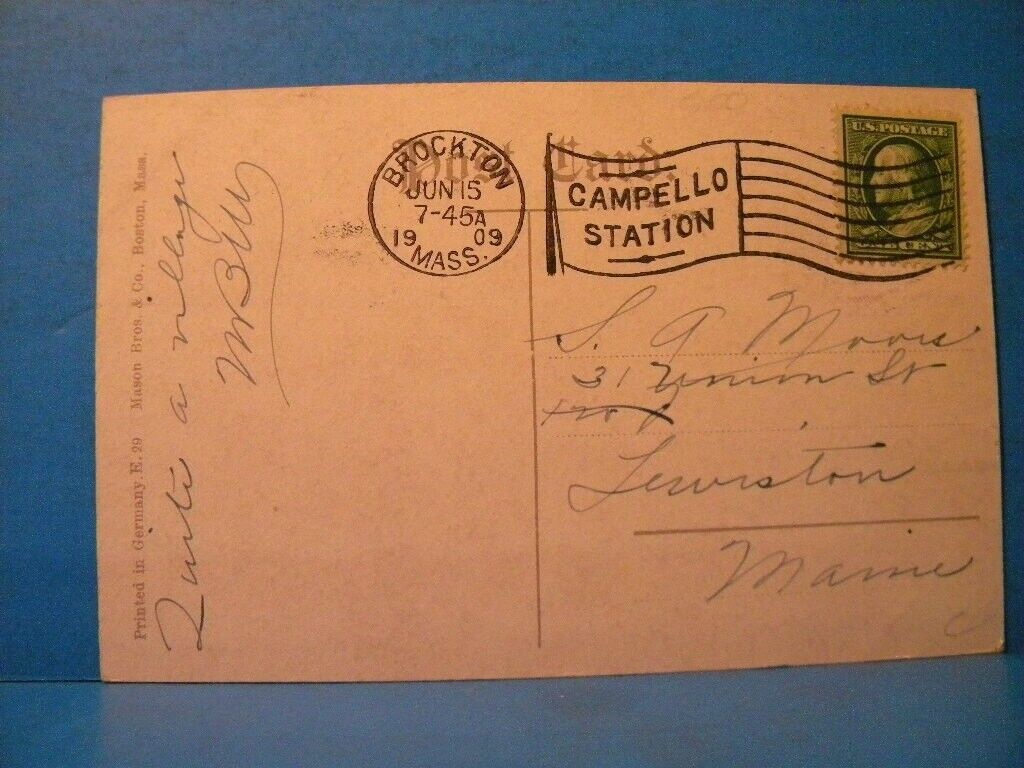 Post Card.
BROCKTON
JUN 15
7-45A
19 09
MASS.
CAMPELLO
STATION
U.S. POSTAGE
ONE CENT
S. A. Moore
31 Union St
Lewiston
Maine
Quite a village
Printed in Germany. E. 29 Mason Bros. & Co., Boston, Mass.